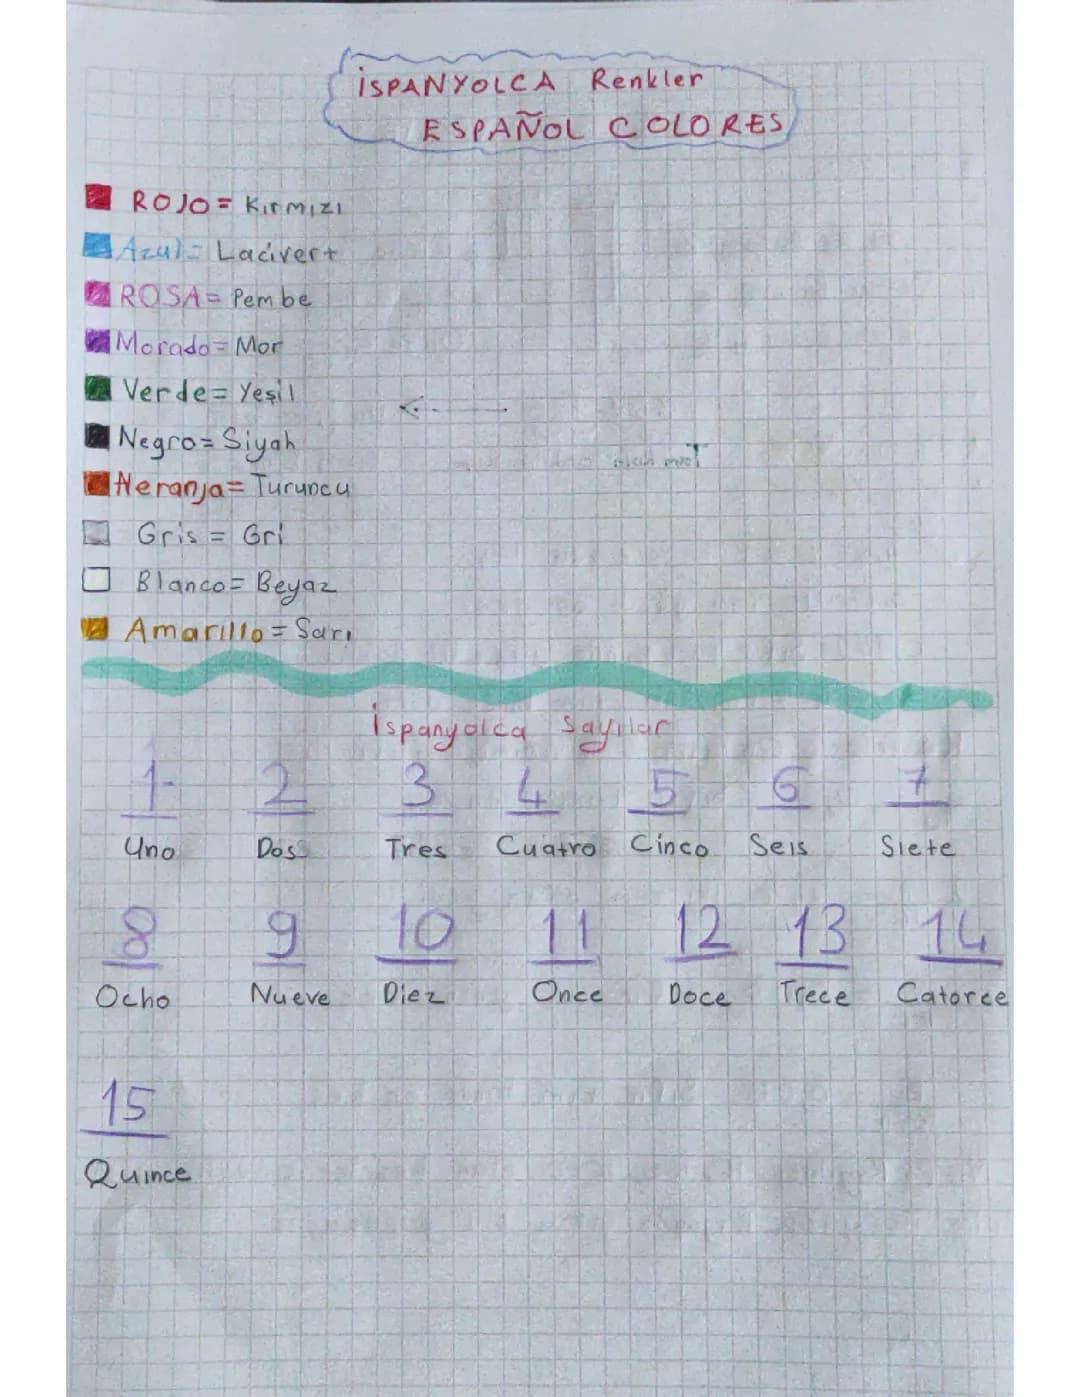 İSPANYOLCA Renkler
ESPAÑOL COLORES
ROJO = Kırmızı
Azul = Lacivert
ROSA = Pembe
Morado = Mor
Verde = Yeşil
Negro = Siyah
Neranja = Turuncu
Gris = Gri
Blanco = Beyaz
Amarillo = Sarı
İspanyolca Sayılar
1 2 3 4 5 6 7
Uno Dos Tres Cuatro Cinco Seis Siete
8 9 10 11 12 13 14
Ocho Nueve Diez Once Doce Trece Catorce
15
Quince